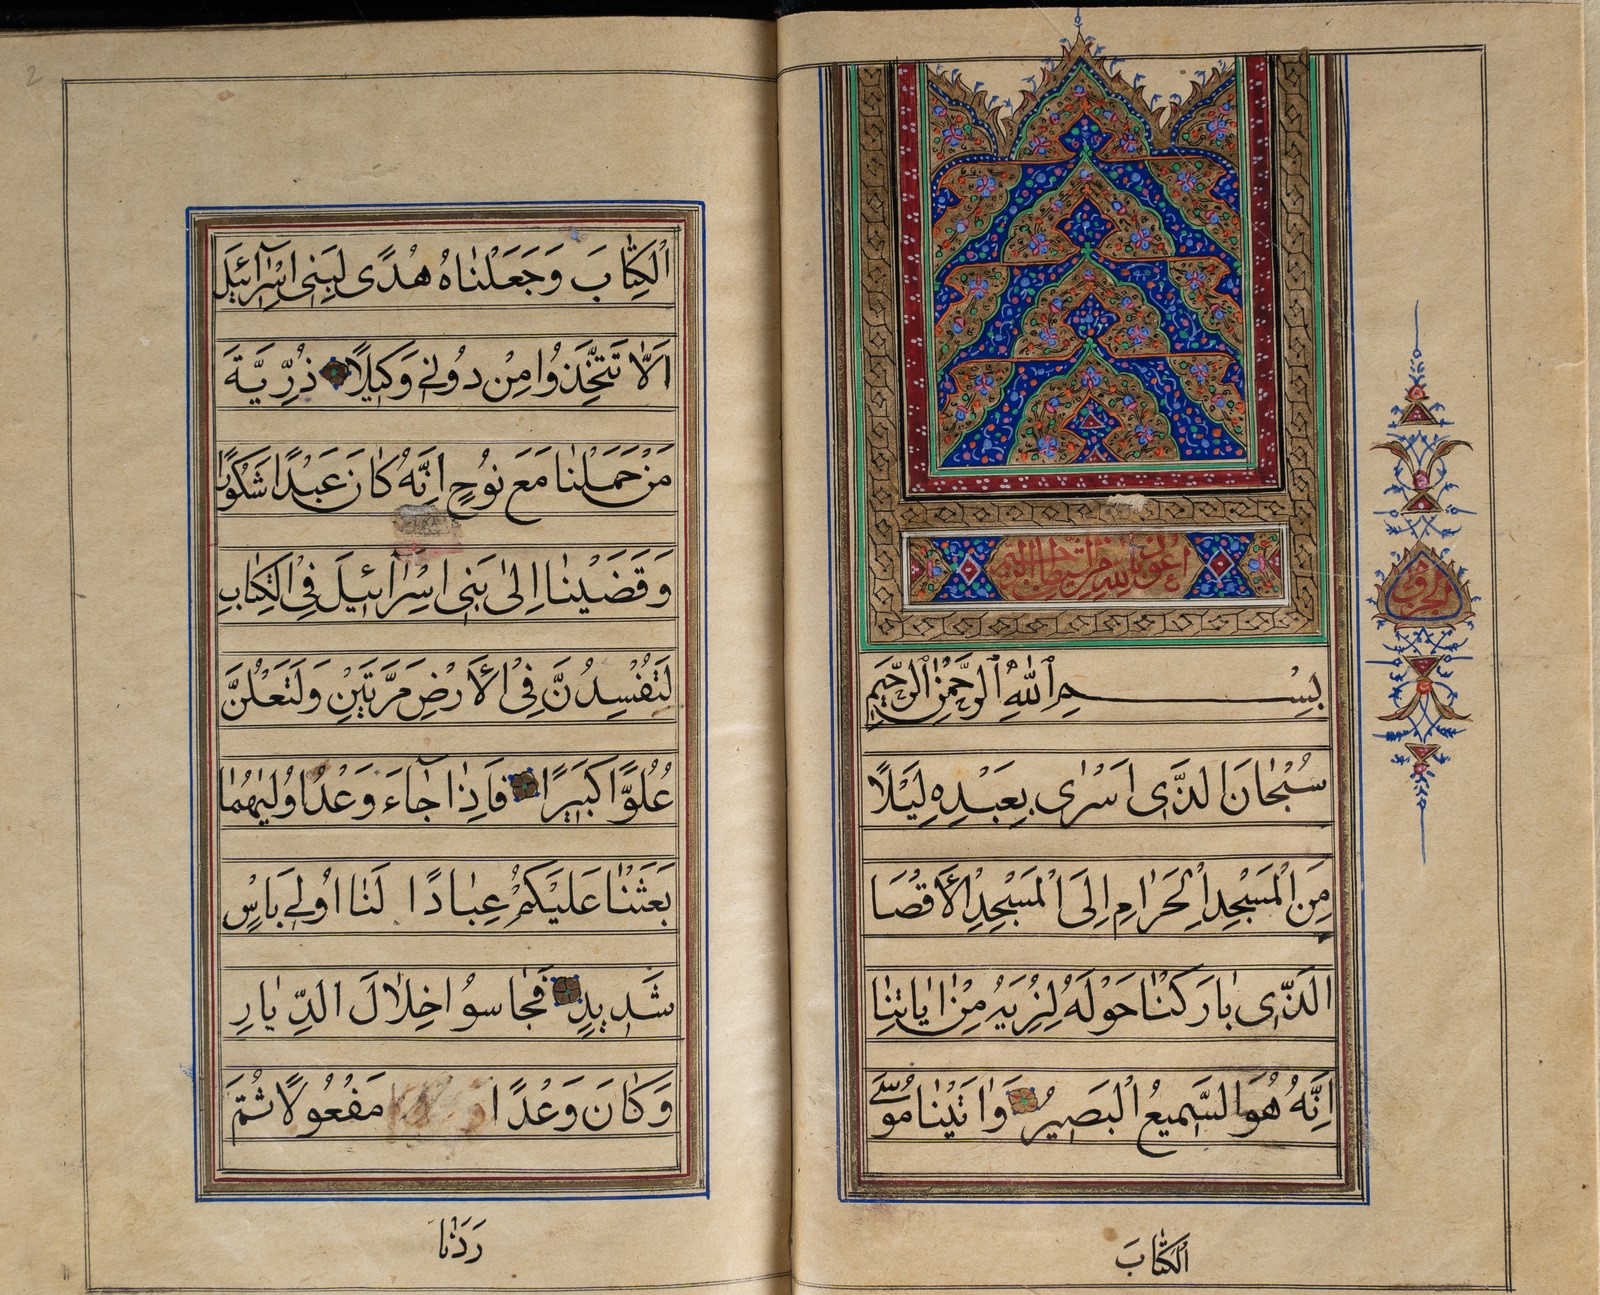 اعوذ بالله من الشيطان الرجيم
بِسْمِ اللهِ الرَّحْمٰنِ الرَّحِيمِ
سُبْحَانَ الَّذِى اَسْرٰى بِعَبْدِهِ لَيْلًا
مِنَ الْمَسْجِدِ الْحَرٰامِ اِلَى الْمَسْجِدِ الْأَقْصَا
الَّذِى بٰارَكْنٰا حَوْلَهُ لِنُرِيَهُ مِنْ اٰيٰاتِنٰا
اِنَّهُ هُوَ السَّمِيعُ الْبَصِيرُ وَاٰتَيْنٰا مُوسَى
اَلْكِتٰابَ
الْكِتٰابَ وَجَعَلْنٰاهُ هُدًى لِبَنِى اِسْرٰآئِيلَ
اَلّٰا تَتَّخِذُوا مِنْ دُونِى وَكِيلًا ذُرِّيَّةَ
مَنْ حَمَلْنٰا مَعَ نُوحٍ اِنَّهُ كٰانَ عَبْدًا شَكُورًا
وَقَضَيْنٰا اِلىٰ بَنِى اِسْرٰآئِيلَ فِى الْكِتٰابِ
لَتُفْسِدُنَّ فِى الْأَرْضِ مَرَّتَيْنِ وَلَتَعْلُنَّ
عُلُوًّا كَبِيرًا فَاِذٰا جٰآءَ وَعْدُ اُولٰيهُمٰا
بَعَثْنٰا عَلَيْكُمْ عِبٰادًا لَنٰا اُولِى بَاْسٍ
شَدِيدٍ فَجٰاسُوا خِلٰالَ الدِّيٰارِ
وَكٰانَ وَعْدًا مَفْعُولًا ثُمَّ
رَدَدْنٰا